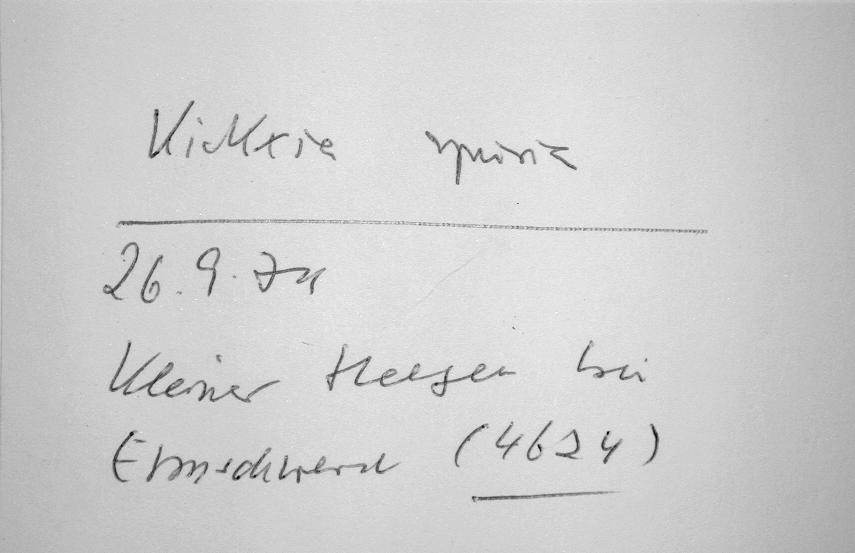 Kickxia spuria
26.9.74
Kleiner bei
Ermschwerd (4624)